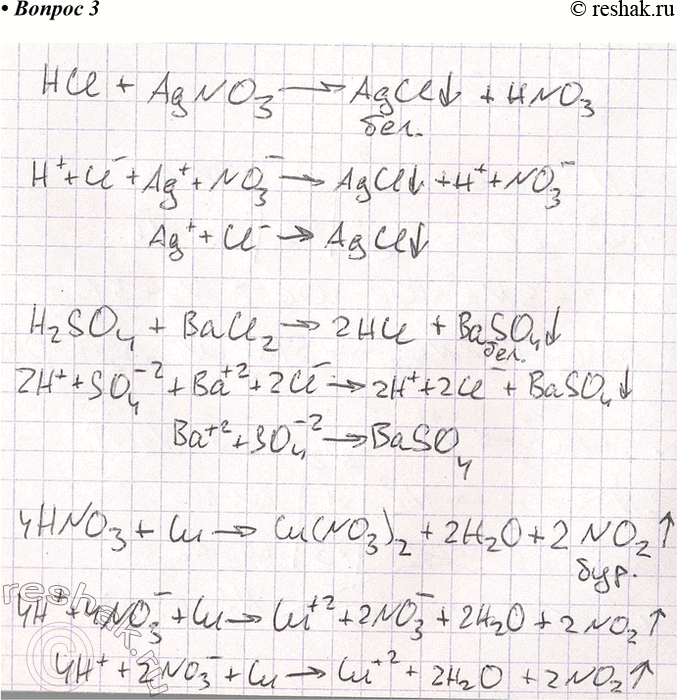 • Вопрос 3
© reshak.ru
HCl + AgNO₃ → AgCl↓ + HNO₃
бел.
H⁺ + Cl⁻ + Ag⁺ + NO₃⁻ → AgCl↓ + H⁺ + NO₃⁻
Ag⁺ + Cl⁻ → AgCl↓
H₂SO₄ + BaCl₂ → 2HCl + BaSO₄↓
бел.
2H⁺ + SO₄⁻² + Ba⁺² + 2Cl⁻ → 2H⁺ + 2Cl⁻ + BaSO₄↓
Ba⁺² + SO₄⁻² → BaSO₄
4HNO₃ + Cu → Cu(NO₃)₂ + 2H₂O + 2NO₂↑
бур.
4H⁺ + 4NO₃⁻ + Cu → Cu⁺² + 2NO₃⁻ + 2H₂O + 2NO₂↑
4H⁺ + 2NO₃⁻ + Cu → Cu⁺² + 2H₂O + 2NO₂↑
reshak.ru